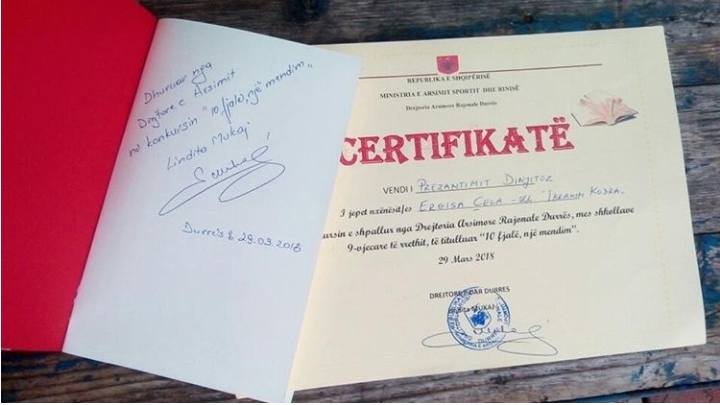 Dhuruar nga
Drejtore e Arsimit
në konkursin "10 fjalë, një mendim"
Lindita Mukaj
Durrës 29.03.2018
REPUBLIKA E SHQIPËRISË
MINISTRIA E ARSIMIT SPORTIT DHE RINISË
Drejtoria Arsimore Rajonale Durrës
CERTIFIKATË
VENDI I PREZANTIMIT DINJITOZ
I jepet nxënësit/es ERGISA CELA - shk "IBRAHIM KODRA"
ursin e shpallur nga Drejtoria Arsimore Rajonale Durrës, mes shkollave
9-vjecare të rrethit, të titulluar "10 fjalë, një mendim".
29 Mars 2018
DREJTORE E DAR DURRES
MUKAJ